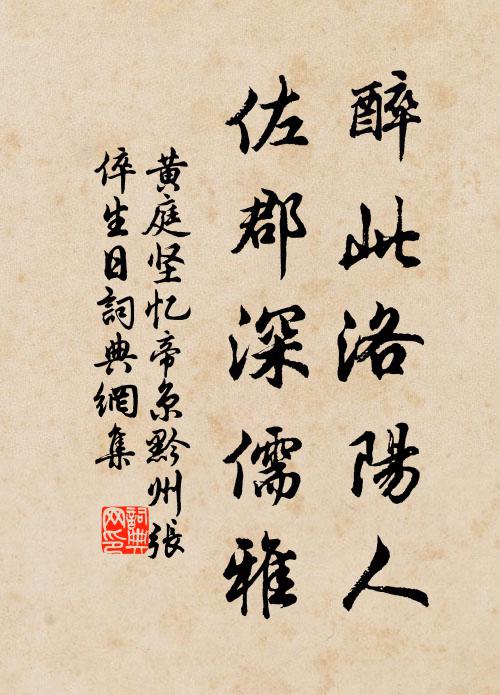 醉此洛陽人
佐郡深儒雅
黄庭坚忆帝京黔州張
倅生日詞典網集
詞典
网印